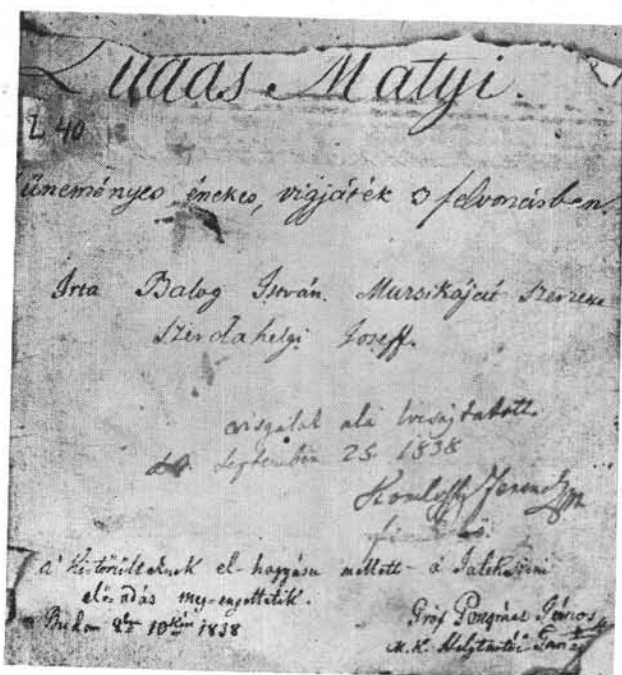 Ludas Matyi.
L 40
tüneményes énekes, vigjáték 3 felvonásban.
Irta Balog István. Mursikáját Szerzette
Szerdahelyi Joseff.
visgálat alá
September 25. 1838
Komlossy Ferencz
a' Ki-törölteknek el-hagyása mellett - a Játékszini
elő-adás meg-engedtetik.
Budán 10 1838
Gróf Pongrácz János
M. K. Helytartói